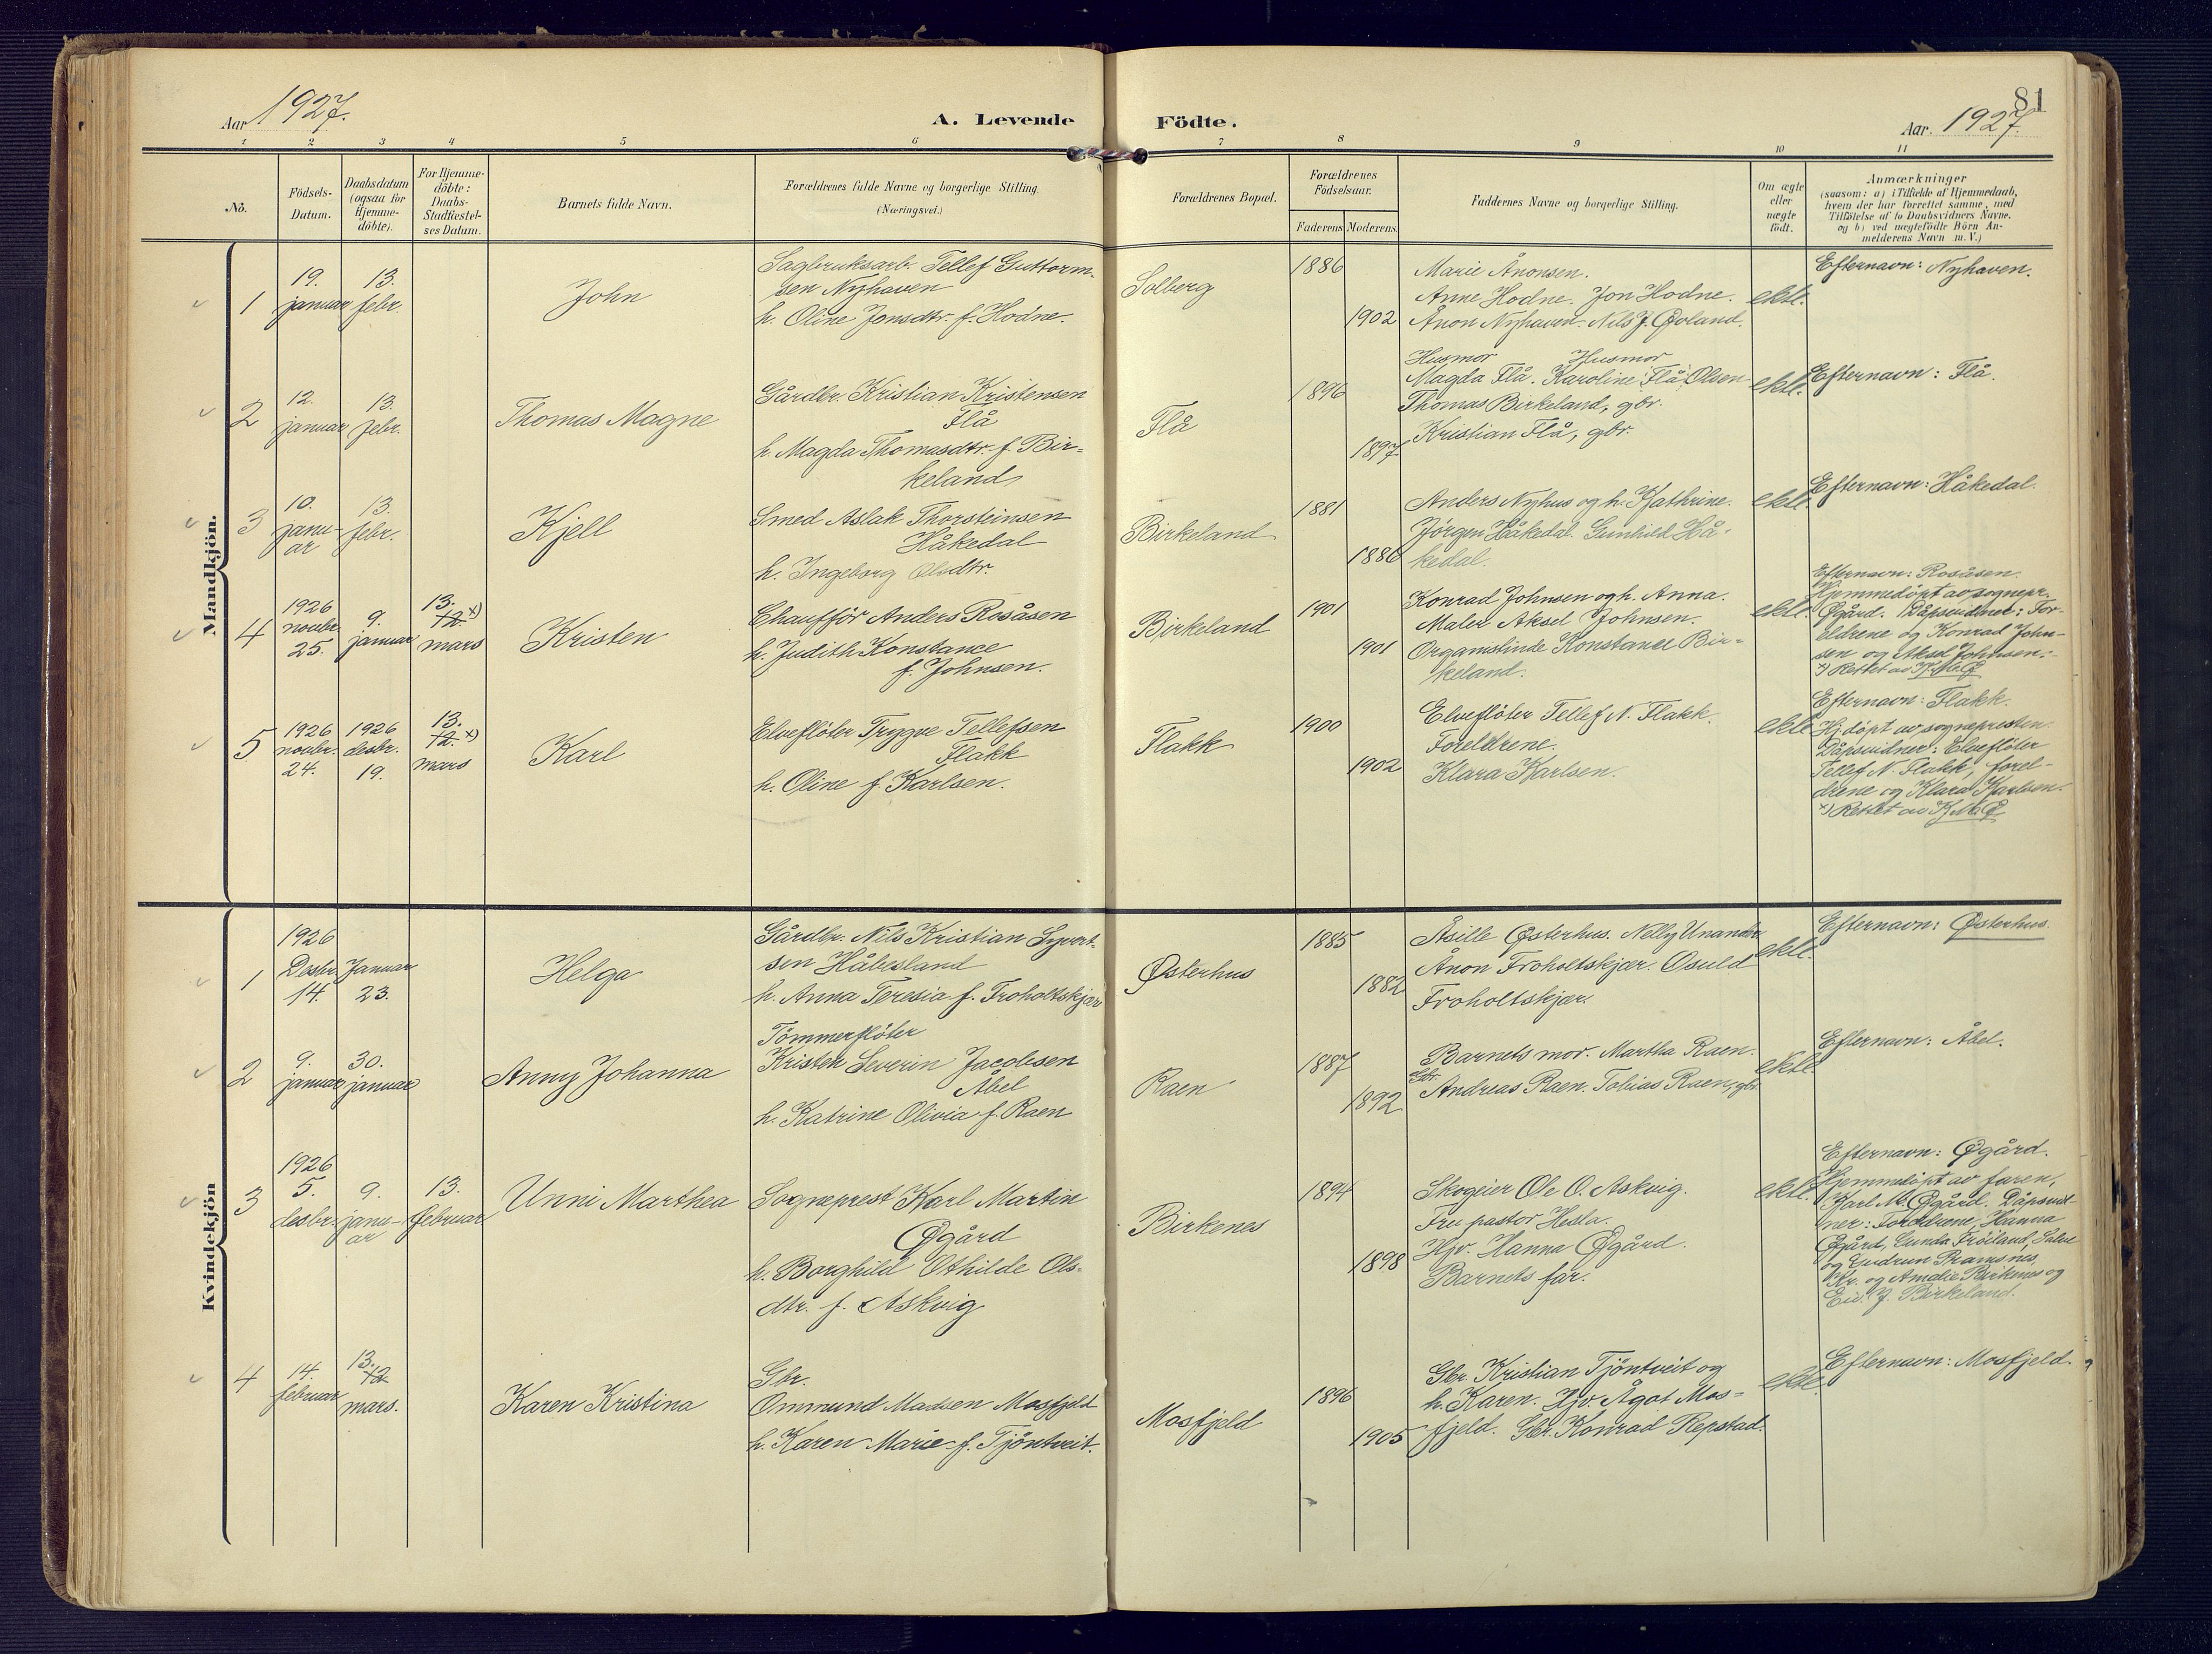 81
Aar 1927.
A. Levende Födte.
Aar. 1927.
1 2 3 4 5 6 7 8 9 10 11
No.
Födsels-
Datum.
Daabsdatum
(ogsaa for
Hjemme-
döbte).
For Hjemme-
döbte:
Daabs-
Stadfæstel-
ses Datum.
Barnets fulde Navn.
Forældrenes fulde Navne og borgerlige Stilling.
(Næringsvei.)
Forældrenes Bopæl.
Forældrenes
Födselsaar.
Faderens Moderens
Faddernes Navne og borgerlige Stilling.
Om ægte
eller
uægte
födt.
Anmærkninger
(saasom: a) i Tilfælde af Hjemmedaab,
hvem der har forrettet samme, med
Tilföielse af to Daabsvidners Navne.
og b) ved uægtefödte Börn An-
melderens Navn m. V.)
Mandkjön.
1
19.
januar
13.
febr.
John
Sagbruksarb. Tellef Guttorm-
sen Nyhaven
h. Oline Jonsdtr. f. Hodne.
Solberg
1886
1902
Marie Ånonsen.
Anne Hodne. Jon Hodne.
Ånon Nyhaven. Nils J. Øvland.
ekte.
Efternavn: Nyhaven.
2
12.
januar
13.
febr.
Thomas Magne
Gårdbr. Kristian Kristensen
Flå
h. Magda Thomasdtr. f. Bir-
keland
Flå
1896
1897
Husmor Husmor
Magda Flå. Karoline Flå Olsen
Thomas Birkeland, gbr.
Kristian Flå, gbr.
ekte.
Efternavn: Flå.
3
10.
janu-
ar
13.
febr.
Kjell
Smed Aslak Thorsteinsen
Håkedal
h. Ingeborg Olsdtr.
Birkeland
1881
1886
Anders Nyhus og h. Kathrine.
Jørgen Håkedal. Gunhild Hå-
kedal.
ekte.
Efternavn: Håkedal.
4
1926
novbr.
25.
9.
januar
13.
12 x)
mars
Kristen
Chauffør Anders Rosåsen
h. Judith Konstance
f. Johnsen.
Birkeland
1901
1901
Konrad Johnsen og h. Anna.
Maler Aksel Johnsen.
Organistinde Konstance Bir-
keland.
ekte.
Efternavn: Rosåsen.
Hjemmedøpt av sognepr.
Øgård. Dåpsvidner: For-
eldrene og Konrad John-
sen og Aksel Johnsen.-
x) Rettet av K.M.Ø
5
1926
novbr.
24.
1926
desbr.
19.
13.
12. x)
mars
Karl
Elvefløter Trygve Tellefsen
Flakk
h. Oline f. Karlsen.
Flakk
1900
1902
Elvefløter Tellef N. Flakk.
Foreldrene.
Klara Karlsen.
ekte
Efternavn: Flakk.
Hj.døpt av sognepresten.
Dåpsvidner: Elvefløter
Tellef N. Flakk, forel-
drene og Klara Karlsen.
x) Rettet av K.M.Ø
Kvindekjön
1
1926
Desbr.
14.
Januar
23.
Helga
Gårdbr. Nils Kristian Syvert-
sen Håbesland
h. Anna Teresia f. Froholtskjær
Østerhus
1885
1882
Åsille Østerhus. Nelly Unander
Ånon Froholtskjær. Osuld
Froholtskjær.
ekte.
Efternavn: Østerhus.
2
9.
januar
30.
januar
Anny Johanna
Tømmerfløter
Kristen Severin Jacobsen
Åbel
h. Katrine Olivia f. Raen
Raen
1887
1892
Barnets mor. Martha Raen.
Gbr.
Andreas Raen. Tobias Raen, gbr
ekte.
Efternavn: Åbel.
3
1926
5.
desbr.
9.
janu-
ar
13.
februar
Unni Marthea
Sogneprest Karl Martin
Øgård
h. Borghild Othilde Ols-
dtr. f. Askvig
Birkenes
1894
1898
Skogeier Ole O. Askvig.
Fru pastor Hesla.
Hjv. Hanna Øgård.
Barnets far.
ekte.
Efternavn: Øgård.
Hjemmedøpt av faren,
Karl M. Øgård. Dåpsvid-
ner: Foreldrene, Hanna
Øgård, Gunda Frøiland,
og Gudrun
Kr. og Amalie Birkenes og
J. Birkeland.
4
14.
februar
13.
12
mars.
Karen Kristina
Gbr.
Ommund Madsen Mosfjeld
h. Karen Marie f. Tjöntveit.
Mosfjeld
1896
1905
Gbr. Kristian Tjöntveit og
h. Karen. Hjv. Ågot Mos-
fjeld. Gbr. Konrad Repstad.
ekte.
Efternavn: Mosfjeld.